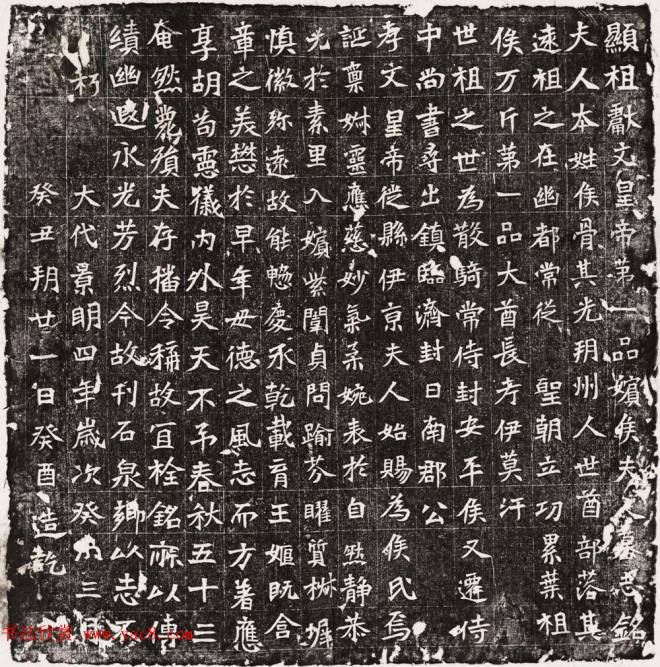 顯祖獻文皇帝第一品嬪侯夫人墓志銘
夫人本姓侯骨其先朔州人世酋部落其
遠祖之在幽都常從 聖朝立功累葉祖
俟万斤第一品大酋長考伊莫汗
世祖之世為散騎常侍封安平侯又遷侍
中尚書尋出鎮臨濟封日南郡公
孝文皇帝徙縣伊京夫人始賜為侯氏焉
誕稟婌靈應慈妙氣柔婉表於自然靜恭
光於素里入嬪紫闈貞問踰芬曜質椒墀
慎徽弥遠故能惣慶承乾載育王姬既含
章之美懋於早年毋德之風志而方著應
享胡耇憲儀內外昊天不弔春秋五十三
奄然薨殞夫存播令稱故宜栓銘庥以傳
績幽遐永光芳烈今故刊石泉鄉以志不
朽
大代景明四年歲次癸未三月
癸丑朔廿一日癸酉造訖
www.yac